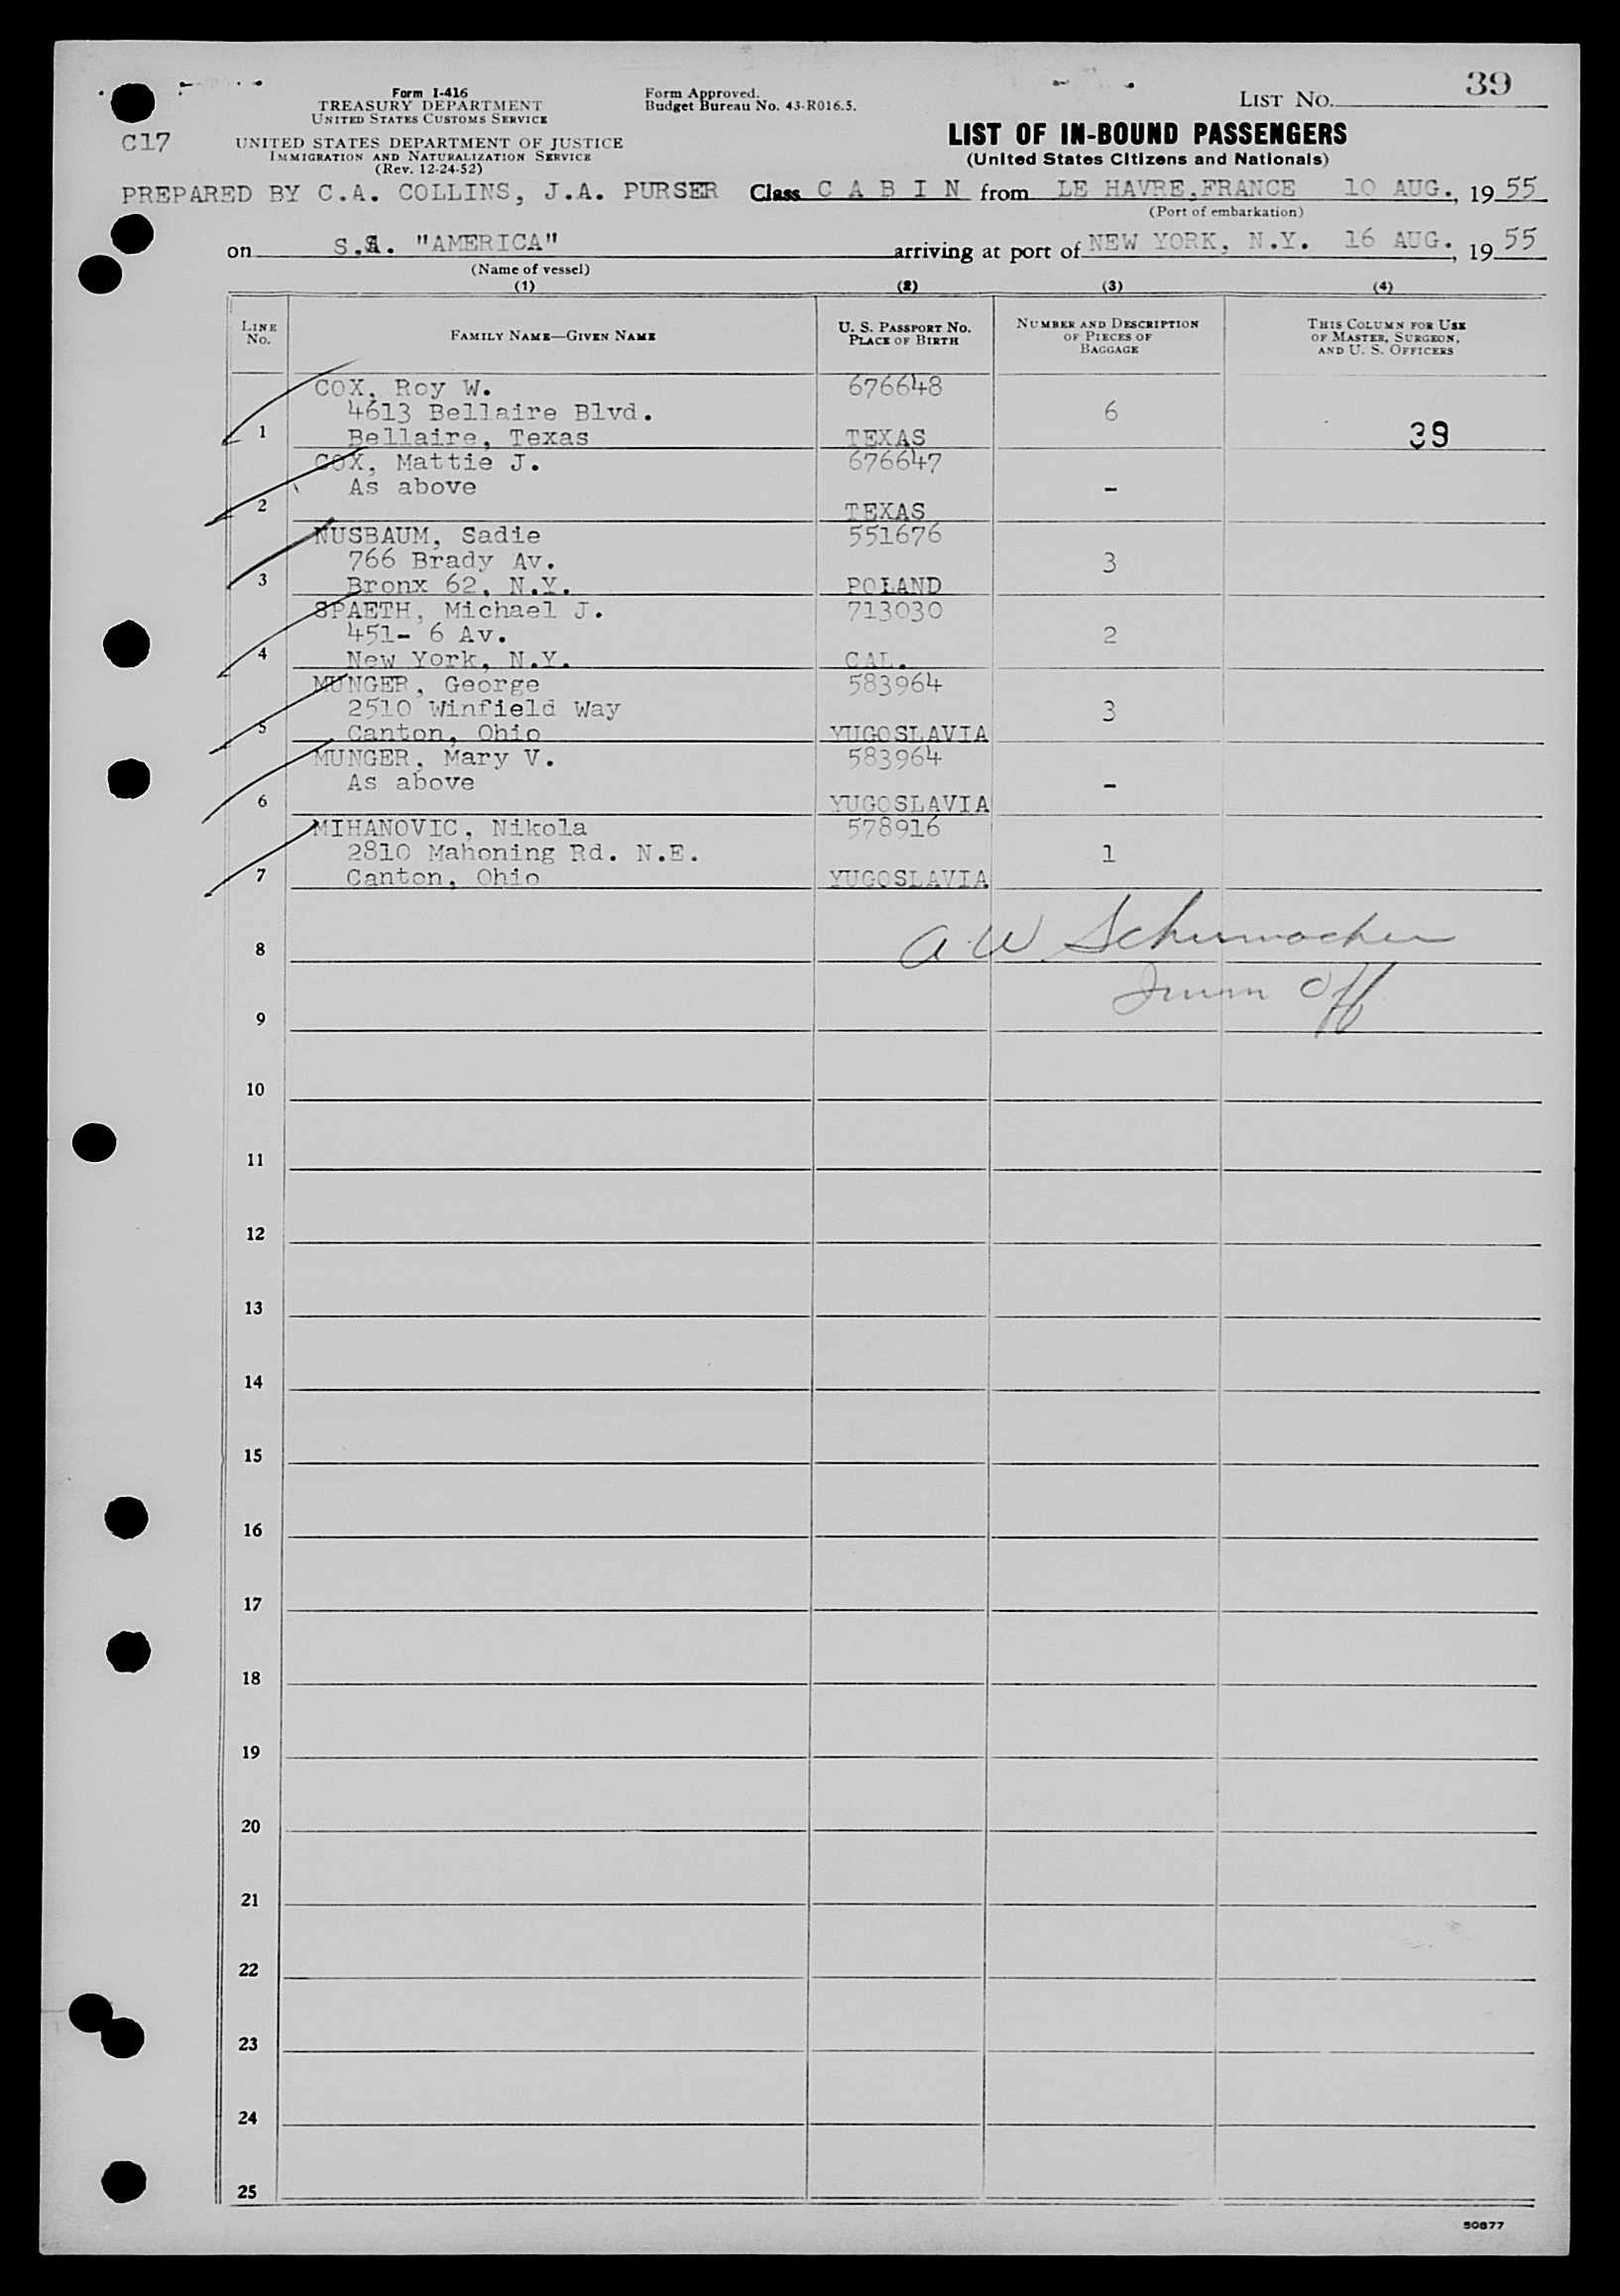 39
Form I-416
TREASURY DEPARTMENT
UNITED STATES CUSTOMS SERVICE
Form Approved.
Budget Bureau No. 43-R016.5.
LIST NO.
C17
UNITED STATES DEPARTMENT OF JUSTICE
IMMIGRATION AND NATURALIZATION SERVICE
(Rev. 12-24-52)
LIST OF IN-BOUND PASSENGERS
(United States Citizens and Nationals)
PREPARED BY C.A. COLLINS, J.A. PURSER Class C A B I N from LE HAVRE,FRANCE 10 AUG., 19 55
(Port of embarkation)
on S.S. "AMERICA" arriving at port of NEW YORK, N.Y. 16 AUG., 19 55
(Name of vessel)
(1) (2) (3) (4)
LINE NO. FAMILY NAME—GIVEN NAME U. S. PASSPORT NO. PLACE OF BIRTH NUMBER AND DESCRIPTION OF PIECES OF BAGGAGE THIS COLUMN FOR USE OF MASTER, SURGEON, AND U. S. OFFICERS
COX, Roy W. 676648
4613 Bellaire Blvd. 6
1 Bellaire, Texas TEXAS 39
COX, Mattie J. 676647
As above -
2 TEXAS
NUSBAUM, Sadie 551676
766 Brady Av. 3
3 Bronx 62, N.Y. POLAND
SPAETH, Michael J. 713030
451- 6 Av. 2
4 New York, N.Y. CAL.
MUNGER, George 583964
2510 Winfield Way 3
5 Canton, Ohio YUGOSLAVIA
MUNGER, Mary V. 583964
As above -
6 YUGOSLAVIA
MIHANOVIC, Nikola 578916
2810 Mahoning Rd. N.E. 1
7 Canton, Ohio YUGOSLAVIA
8 A W Schumacher
9 Imm Off
10
11
12
13
14
15
16
17
18
19
20
21
22
23
24
25
50877